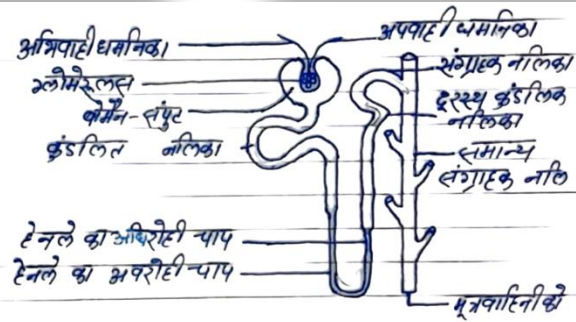 अभिवाही धमनिका
ग्लोमेरूलस
बोमैन-संपुट
कुंडलित नलिका
हेनले का अधिरोही चाप
हेनले का अवरोही चाप
अपवाही धमनिका
संग्राहक नलिका
दूरस्थ कुंडलिक
नलिका
समान्य
संग्राहक नलि
मूत्रवाहिनी को